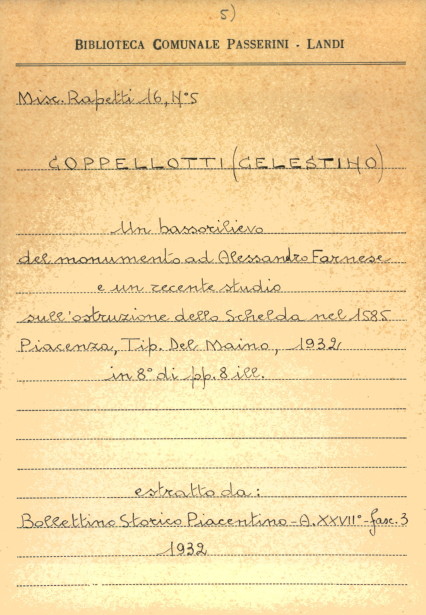 5)
BIBLIOTECA COMUNALE PASSERINI - LANDI
Misc. Rapetti 16, N°5
COPPELLOTTI (CELESTINO)
Un bassorilievo
del monumento ad Alessandro Farnese
e un recente studio
sull'ostruzione dello Schelda nel 1585
Piacenza, Tip. Del Maino, 1932
in 8° di pp. 8 ill.
estratto da:
Bollettino Storico Piacentino - A. XXVII° - fasc. 3
1932